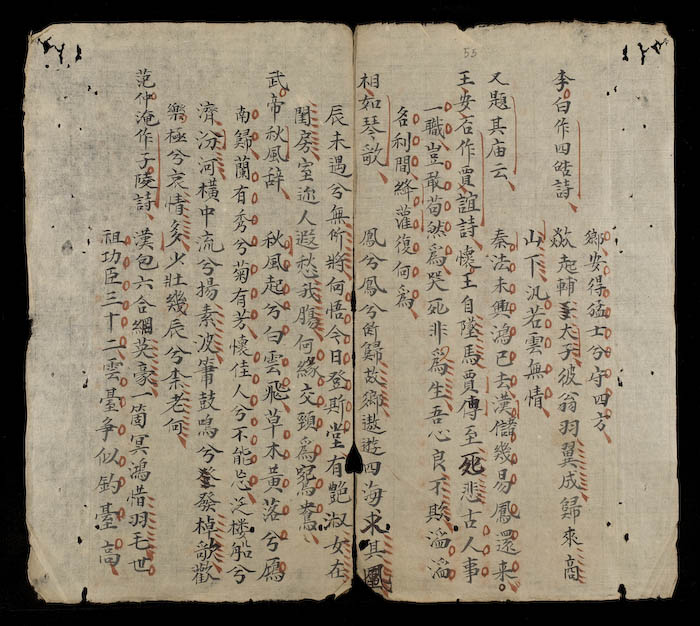 55
鄉安得猛士兮守四方
李白作四皓詩 欻起輔太子彼翁羽翼成歸來商
山下汎若雲無情
又題其庙云 秦法未興鴻已去漢儲幾易鳳還来
王安石作賈誼詩 懷王自墜馬賈傅至死悲古人事
一職豈敢苟然爲哭死非爲生吾心良不欺滔滔
名利間絳灌復何爲
相如琴歌 鳳兮鳳兮歸故鄉遨遊四海求其凰
辰未遇兮無所將何悟今日登斯堂有艶淑女在
閨房室迩人遐愁我腸何緣交頸爲鴛鴦
武帝秋風辞 秋風起兮白雲飛草木黄落兮鴈
南歸蘭有秀兮菊有芳懷佳人兮不能忘泛楼船兮
濟汾河横中流兮揚素波簫鼓鳴兮發棹歌歡
樂極兮哀情多少壯幾辰兮柰老何
范仲淹作子陵詩 漢包六合網英豪一箇冥鴻惜羽毛世
祖功臣三十二雲臺争似釣臺高